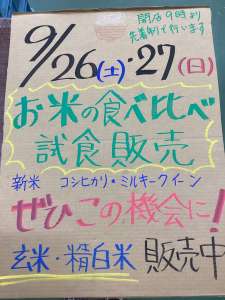 開店9時より
先着制で行います
9/26(土)・27(日)
お米の食べ比べ
試食販売
新米 コシヒカリ・ミルキークイーン
ぜひこの機会に!
玄米・精白米 販売中